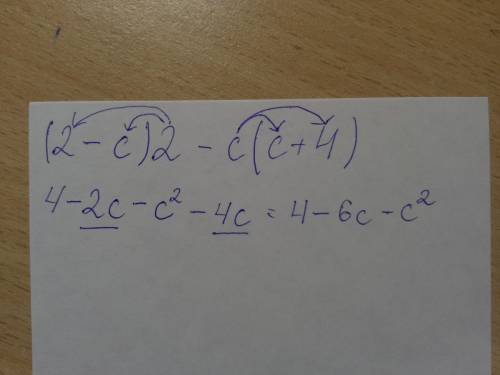 (2 - c)2 - c(c + 4)
4 - 2c - c² - 4c = 4 - 6c - c²